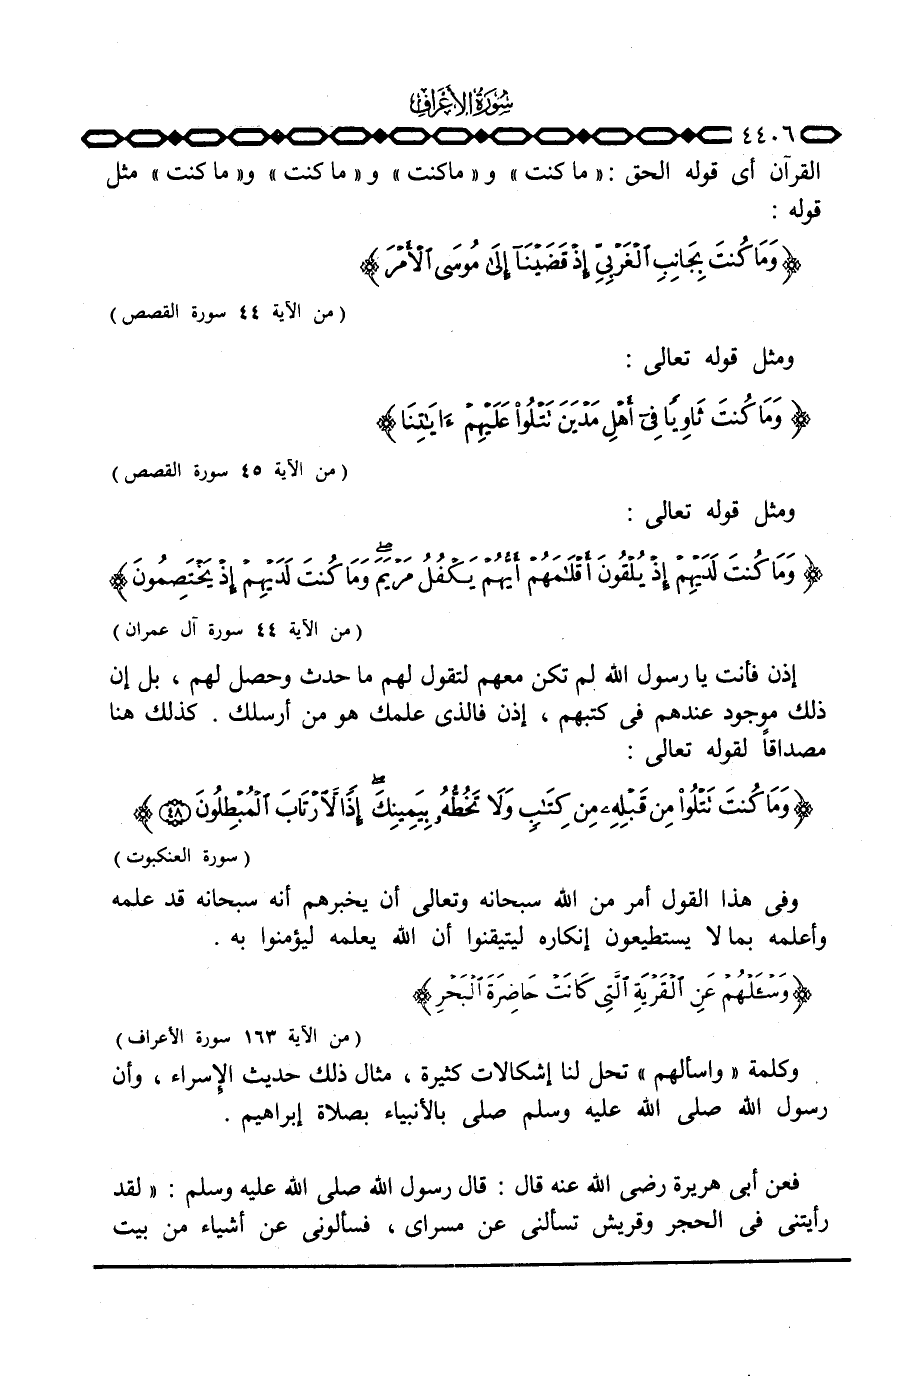 سُورَةُ الأَعْرَافِ
٤٤٠٦
القرآن أى قوله الحق : « ما كنت » و « ماكنت » و « ما كنت » و« ما كنت » مثل
قوله :
﴿ وَمَا كُنتَ بِجَانِبِ ٱلْغَرْبِيِّ إِذْ قَضَيْنَآ إِلَىٰ مُوسَى ٱلْأَمْرَ ﴾
( من الآية ٤٤ سورة القصص )
ومثل قوله تعالى :
﴿ وَمَا كُنتَ ثَاوِيًا فِىٓ أَهْلِ مَدْيَنَ تَتْلُوا۟ عَلَيْهِمْ ءَايَٰتِنَا ﴾
( من الآية ٤٥ سورة القصص )
ومثل قوله تعالى :
﴿ وَمَا كُنتَ لَدَيْهِمْ إِذْ يُلْقُونَ أَقْلَٰمَهُمْ أَيُّهُمْ يَكْفُلُ مَرْيَمَ ۖ وَمَا كُنتَ لَدَيْهِمْ إِذْ يَخْتَصِمُونَ ﴾
( من الآية ٤٤ سورة آل عمران )
إذن فأنت يا رسول الله لم تكن معهم لتقول لهم ما حدث وحصل لهم ، بل إن
ذلك موجود عندهم فى كتبهم ، إذن فالذى علمك هو من أرسلك . كذلك هنا
مصداقاً لقوله تعالى :
﴿ وَمَا كُنتَ تَتْلُوا۟ مِن قَبْلِهِۦ مِن كِتَٰبٍ وَلَا تَخُطُّهُۥ بِيَمِينِكَ ۖ إِذًا لَّٱرْتَابَ ٱلْمُبْطِلُونَ ٤٨ ﴾
( سورة العنكبوت )
وفى هذا القول أمر من الله سبحانه وتعالى أن يخبرهم أنه سبحانه قد علمه
وأعلمه بما لا يستطيعون إنكاره ليتيقنوا أن الله يعلمه ليؤمنوا به .
﴿ وَسْـَٔلْهُمْ عَنِ ٱلْقَرْيَةِ ٱلَّتِى كَانَتْ حَاضِرَةَ ٱلْبَحْرِ ﴾
( من الآية ١٦٣ سورة الأعراف )
وكلمة « واسألهم » تحل لنا إشكالات كثيرة ، مثال ذلك حديث الإسراء ، وأن
رسول الله صلى الله عليه وسلم صلى بالأنبياء بصلاة إبراهيم .
فعن أبى هريرة رضى الله عنه قال : قال رسول الله صلى الله عليه وسلم : « لقد
رأيتنى فى الحجر وقريش تسألنى عن مسراى ، فسألونى عن أشياء من بيت